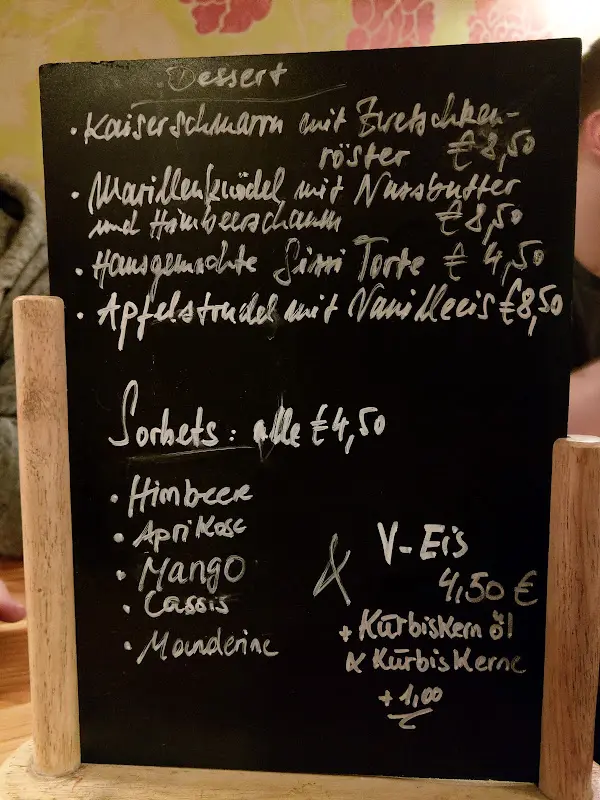 Dessert
· Kaiserschmarrn mit Zwetschken-
röster € 8,50
· Marillenknödel mit Nussbutter
und Himbeerschaum € 8,50
· Hausgemachte Sissi Torte € 4,50
· Apfelstrudel mit Vanilleeis €8,50
Sorbets: alle €4,50
· Himbeere
· Aprikose
· Mango
· Cassis
· Manderine
& V-Eis
4,50 €
+ Kürbiskernöl
& Kürbiskerne
+ 1,00